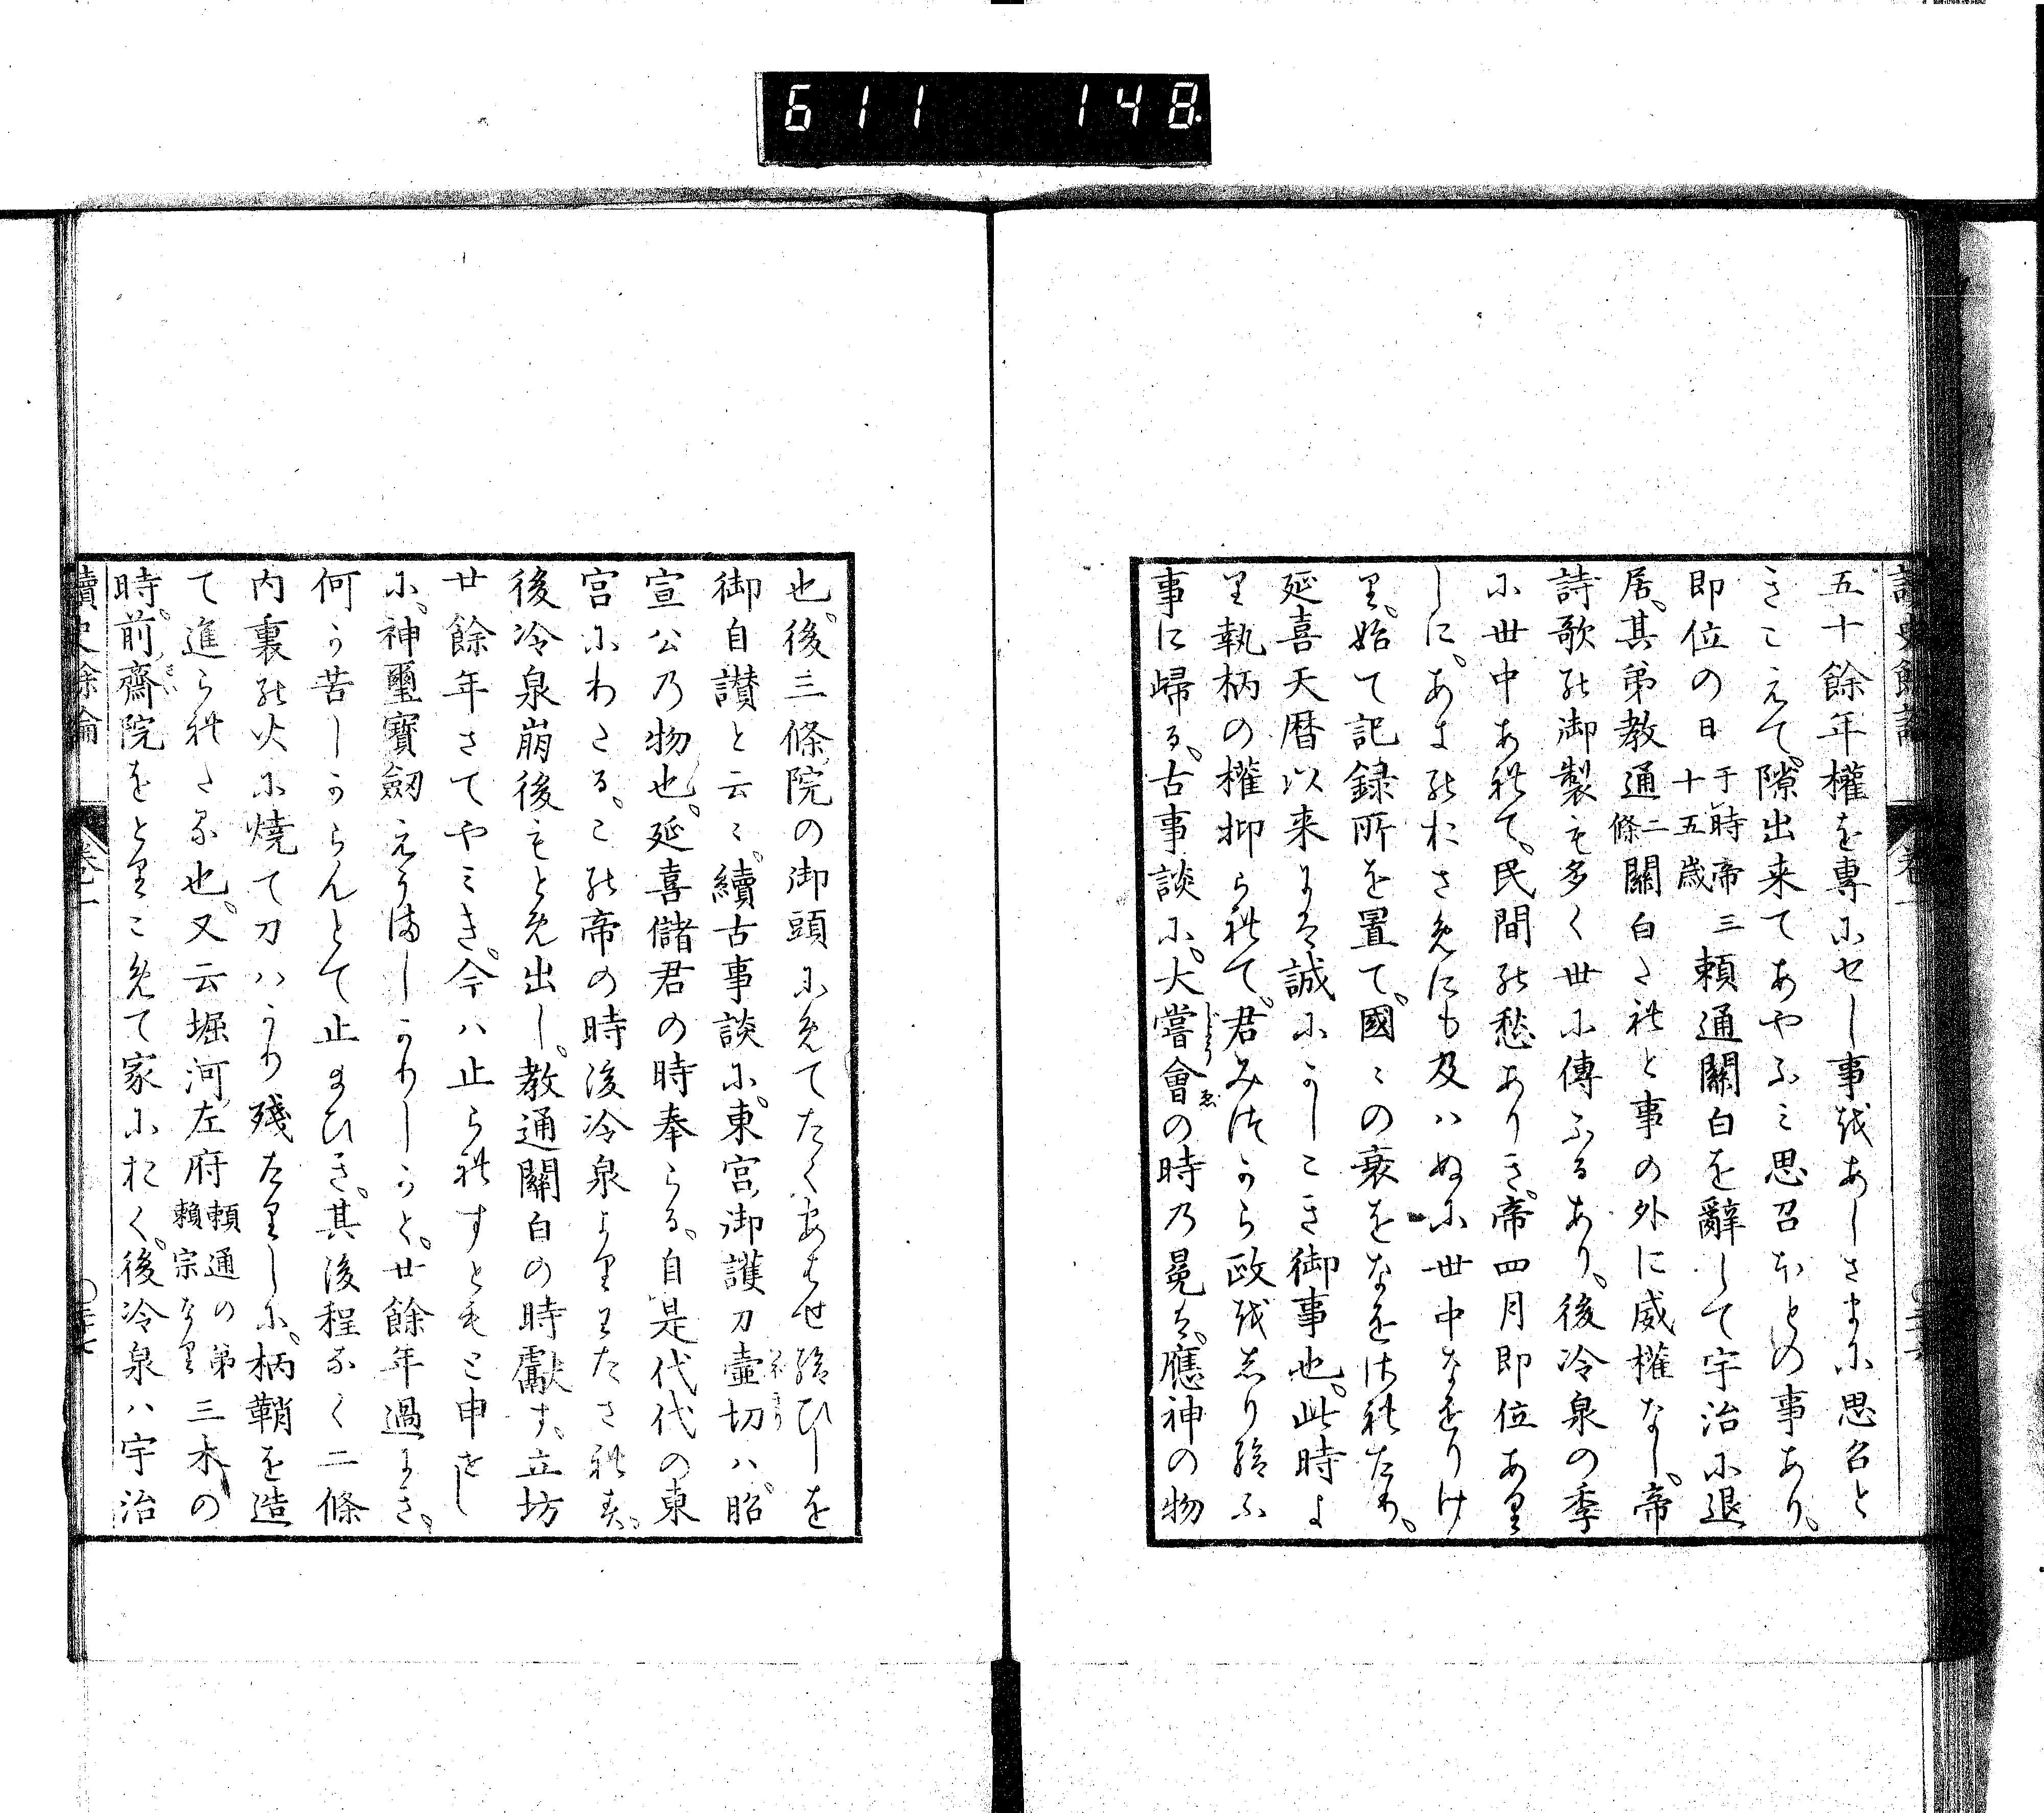 611 148
讀史餘論 卷一
五十餘年權を專にせし事をあしさまに思召と
きこえて。隙出来てあやふミ思召ほとの事あり。
即位の日于時帝三十五歳頼通關白を辭して宇治に退
居。其弟教通二條關白たれと事の外に威權なし。帝
詩歌の御製も多く世に傳ふるあり。後冷泉の季
に世中あれて。民間の愁ありき。帝四月即位あり
しに。あきのおさめにも及ハぬに世中なをりけ
り。始て記録所を置て。國ミの衰をなをされたり。
延喜天暦以来にハ誠にかしこき御事也。此時よ
り執柄の權抑られて。君みつから政をしり給ふ
事に歸る。古事談に。大嘗會の時乃冕は。應神の物
也。後三條院の御頭にめてたくあはせ給ひしを
御自讃と云ミ。續古事談に。東宮御護刀壺切ハ。昭
宣公乃物也。延喜儲君の時奉らる。自是代代の東
宮にわたる。この帝の時後冷泉よりわたされす。
後冷泉崩後もとめ出し。教通關白の時獻す。立坊
廿餘年さてやミき。今ハ止られすともと申せし
に。神璽寳劔えうましかりしかと。廿餘年過にき。
何か苦しからんとて止まひき。其後程なく二條
内裏の火に燒て刀ハかり殘たりしに。柄鞘を造
て進られたる也。又云堀河左府頼通の弟頼宗なり三木の
時。前齋院をとりこめて家におく。後冷泉ハ宇治
讀史餘論 卷一